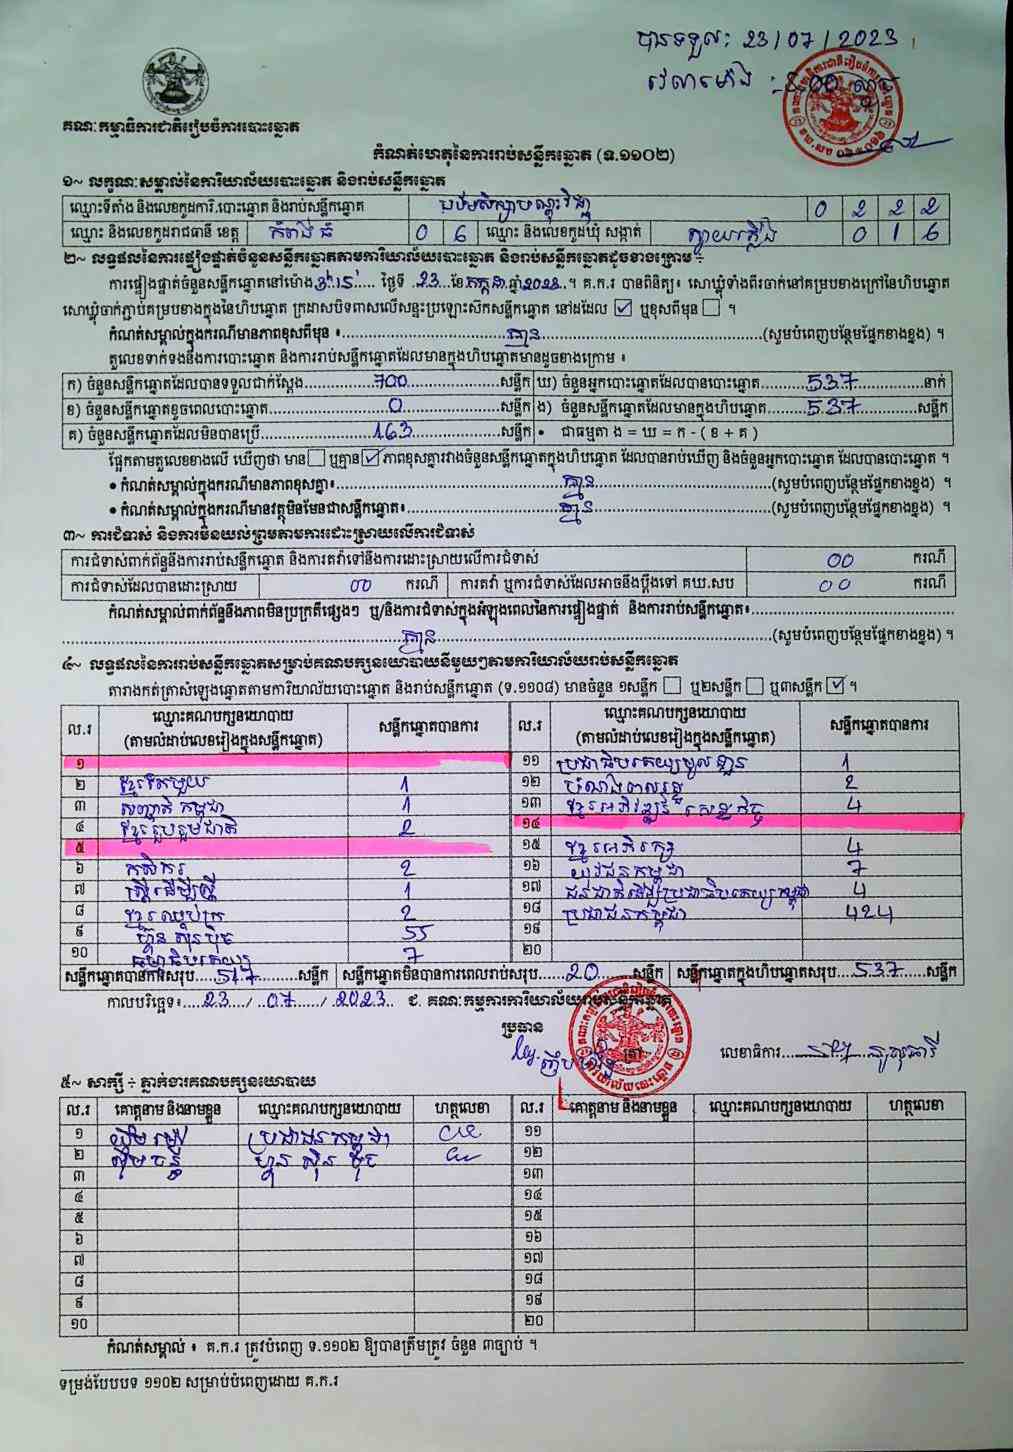 បានទទួល: 23/07/2023
វេលាម៉ោង :
គណៈកម្មាធិការជាតិរៀបចំការបោះឆ្នោត
កំណត់ហេតុនៃការរាប់សន្លឹកឆ្នោត (ទ.១១០២)
១~ លក្ខណៈសម្គាល់នៃការិយាល័យបោះឆ្នោត និងរាប់សន្លឹកឆ្នោត
ឈ្មោះទីតាំង និងលេខកូដការិ.បោះឆ្នោត និងរាប់សន្លឹកឆ្នោត 0 2 2 2
ឈ្មោះ និងលេខកូដរាជធានី ខេត្ត កំពង់ធំ 0 6 ឈ្មោះ និងលេខកូដឃុំ សង្កាត់ 0 1 6
២~ លទ្ធផលនៃការផ្ទៀងផ្ទាត់ចំនួនសន្លឹកឆ្នោតតាមការិយាល័យបោះឆ្នោត និងរាប់សន្លឹកឆ្នោតដូចខាងក្រោម ÷
ការផ្ទៀងផ្ទាត់ចំនួនសន្លឹកឆ្នោតនៅម៉ោង ..... ថ្ងៃទី .23... ខែ កក្កដា ឆ្នាំ ..។ គ.ក.រ បានពិនិត្យ៖ សោឃ្លុំទាំងពីរចាក់នៅគម្របខាងក្រៅនៃហិបឆ្នោត
សោឃ្លុំចាក់ភ្ជាប់គម្របខាងក្នុងនៃហិបឆ្នោត ក្រដាសបិទពាសលើសន្ទះប្រឡោះស៊កសន្លឹកឆ្នោត នៅដដែល ☑ ឬខុសពីមុន ☐ ។
កំណត់សម្គាល់ក្នុងករណីមានភាពខុសពីមុន ៖ គ្មាន (សូមបំពេញបន្ថែមផ្នែកខាងខ្នង) ។
តួលេខទាក់ទងនឹងការបោះឆ្នោត និងការរាប់សន្លឹកឆ្នោតដែលមានក្នុងហិបឆ្នោតមានដូចខាងក្រោម ៖
ក) ចំនួនសន្លឹកឆ្នោតដែលបានទទួលជាក់ស្តែង 700 សន្លឹក ឃ) ចំនួនអ្នកបោះឆ្នោតដែលបានបោះឆ្នោត 537 នាក់
ខ) ចំនួនសន្លឹកឆ្នោតខូចពេលបោះឆ្នោត 0 សន្លឹក ង) ចំនួនសន្លឹកឆ្នោតដែលមានក្នុងហិបឆ្នោត 537 សន្លឹក
គ) ចំនួនសន្លឹកឆ្នោតដែលមិនបានប្រើ 163 សន្លឹក • ជាធម្មតា ង = ឃ = ក - ( ខ + គ )
ផ្អែកតាមតួលេខខាងលើ ឃើញថា មាន ☐ ឬគ្មាន ☑ ភាពខុសគ្នារវាងចំនួនសន្លឹកឆ្នោតក្នុងហិបឆ្នោត ដែលបានរាប់ឃើញ និងចំនួនអ្នកបោះឆ្នោត ដែលបានបោះឆ្នោត ។
• កំណត់សម្គាល់ក្នុងករណីមានភាពខុសគ្នា៖ គ្មាន (សូមបំពេញបន្ថែមផ្នែកខាងខ្នង) ។
• កំណត់សម្គាល់ក្នុងករណីមានវត្ថុមិនមែនជាសន្លឹកឆ្នោត៖ គ្មាន (សូមបំពេញបន្ថែមផ្នែកខាងខ្នង) ។
៣~ ការជំទាស់ និងការមិនយល់ព្រមតាមការដោះស្រាយលើការជំទាស់
ការជំទាស់ពាក់ព័ន្ធនឹងការរាប់សន្លឹកឆ្នោត និងការតវ៉ាទៅនឹងការដោះស្រាយលើការជំទាស់ 00 ករណី
ការជំទាស់ដែលបានដោះស្រាយ 00 ករណី ការតវ៉ា ឬការជំទាស់ដែលអាចនឹងប្តឹងទៅ គឃ.សប 00 ករណី
កំណត់សម្គាល់ពាក់ព័ន្ធនឹងភាពមិនប្រក្រតីផ្សេងៗ ឬ/និងការជំទាស់ក្នុងអំឡុងពេលនៃការផ្ទៀងផ្ទាត់ និងការរាប់សន្លឹកឆ្នោត៖
គ្មាន (សូមបំពេញបន្ថែមផ្នែកខាងខ្នង) ។
៤~ លទ្ធផលនៃការរាប់សន្លឹកឆ្នោតសម្រាប់គណបក្សនយោបាយនីមួយៗតាមការិយាល័យរាប់សន្លឹកឆ្នោត
តារាងកត់ត្រាសំឡេងឆ្នោតតាមការិយាល័យបោះឆ្នោត និងរាប់សន្លឹកឆ្នោត (ទ.១១០៨) មានចំនួន ១សន្លឹក ☐ ឬ២សន្លឹក ☐ ឬ៣សន្លឹក ☑ ។
ល.រ ឈ្មោះគណបក្សនយោបាយ (តាមលំដាប់លេខរៀងក្នុងសន្លឹកឆ្នោត) សន្លឹកឆ្នោតបានការ ល.រ ឈ្មោះគណបក្សនយោបាយ (តាមលំដាប់លេខរៀងក្នុងសន្លឹកឆ្នោត) សន្លឹកឆ្នោតបានការ
១ ១១ 1
២ ខ្មែរតែមួយ 1 ១២ 2
៣ សញ្ជាតិកម្ពុជា 1 ១៣ ខ្មែរអភិវឌ្ឍន៍សេដ្ឋកិច្ច 4
៤ ខ្មែររួបរួមជាតិ 2 ១៤
៥ ១៥ ខ្មែរអភិរក្ស 4
៦ កសិករ 2 ១៦ យុវជនកម្ពុជា 7
៧ ស្ត្រីដើម្បីស្ត្រី 1 ១៧ ជនជាតិដើមប្រជាធិបតេយ្យកម្ពុជា 4
៨ ខ្មែរឈប់ក្រ 2 ១៨ ប្រជាជនកម្ពុជា 424
៩ ហ្វ៊ុនស៊ិនប៉ិច 55 ១៩
១០ ធម្មាធិបតេយ្យ 7 ២០
សន្លឹកឆ្នោតបានការសរុប 517 សន្លឹក សន្លឹកឆ្នោតមិនបានការពេលរាប់សរុប 20 សន្លឹក សន្លឹកឆ្នោតក្នុងហិបឆ្នោតសរុប 537 សន្លឹក
កាលបរិច្ឆេទ៖ 23 / 07 / 2023 ជ. គណៈកម្មការការិយាល័យរាប់សន្លឹកឆ្នោត
ប្រធាន
លេខាធិការ
៥~ សាក្សី ÷ ភ្នាក់ងារគណបក្សនយោបាយ
ល.រ គោត្តនាម និងនាមខ្លួន ឈ្មោះគណបក្សនយោបាយ ហត្ថលេខា ល.រ គោត្តនាម និងនាមខ្លួន ឈ្មោះគណបក្សនយោបាយ ហត្ថលេខា
១ ប្រជាជនកម្ពុជា ១១
២ ហ៊្វុនស៊ិនប៉ិច ១២
៣ ១៣
៤ ១៤
៥ ១៥
៦ ១៦
៧ ១៧
៨ ១៨
៩ ១៩
១០ ២០
កំណត់សម្គាល់ ៖ គ.ក.រ ត្រូវបំពេញ ទ.១១០២ ឱ្យបានត្រឹមត្រូវ ចំនួន ៣ច្បាប់ ។
ទម្រង់បែបបទ ១១០២ សម្រាប់បំពេញដោយ គ.ក.រ